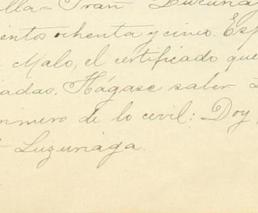 lla - Fran
entos ochenta y cinco. Esp
Malo, el certificado que
adas. Hágase saber
rimero de lo civil: Doy
Luzuriaga.